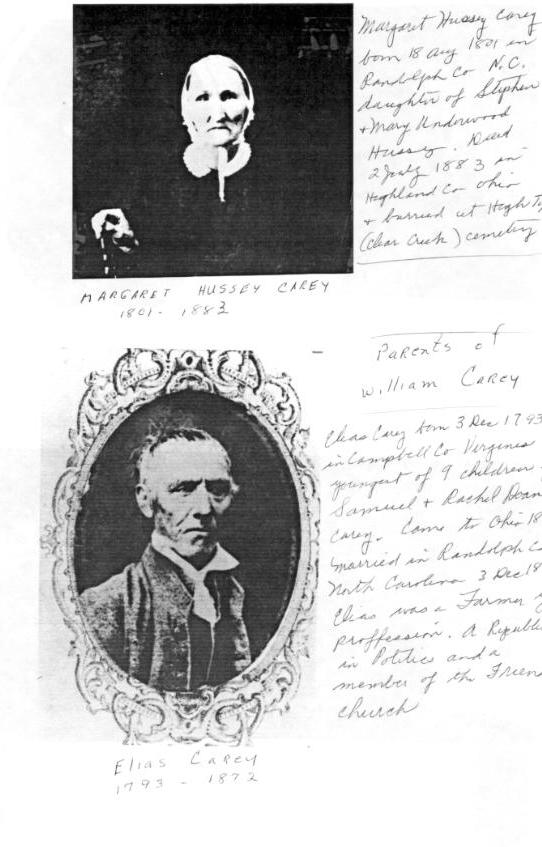 Margaret Hussey Carey
born 18 Aug 1801 in
Randolph Co N.C.
daughter of Stephen
+ Mary Underwood
Hussey. Died
2 July 1883 in
Highland Co Ohio
+ burried at High To
(Clear Creek) cemetery
MARGARET HUSSEY CAREY
1801 - 1883
Parents of
William Carey
Elias Carey born 3 Dec 1793
in Campbell Co Virginia
youngest of 9 children
Samuel + Rachel Doan
Carey. Came to Ohio 18
married in Randolph Co
North Carolina 3 Dec 18
Elias was a Farmer
proffession. A Republi
in Politics and a
member of the Frien
church
Elias Carey
1793 - 1872